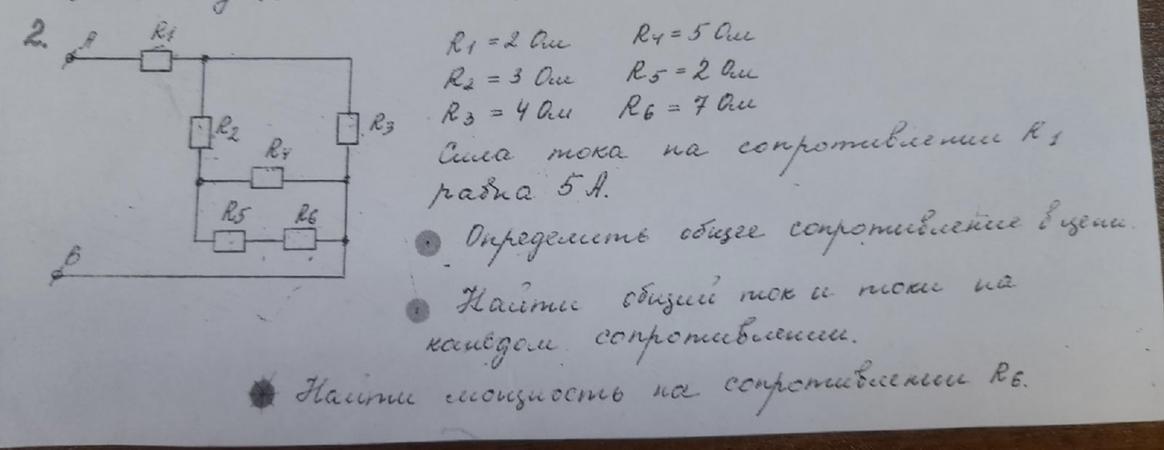 2.
A
R1
R2
R3
R4
R5
R6
B
R1 = 2 Ом R4 = 5 Ом
R2 = 3 Ом R5 = 2 Ом
R3 = 4 Ом R6 = 7 Ом
Сила тока на сопротивлении R1
равна 5 А.
Определить общее сопротивление в цепи.
Найти общий ток и токи на
каждом сопротивлении.
Найти мощность на сопротивлении R6.